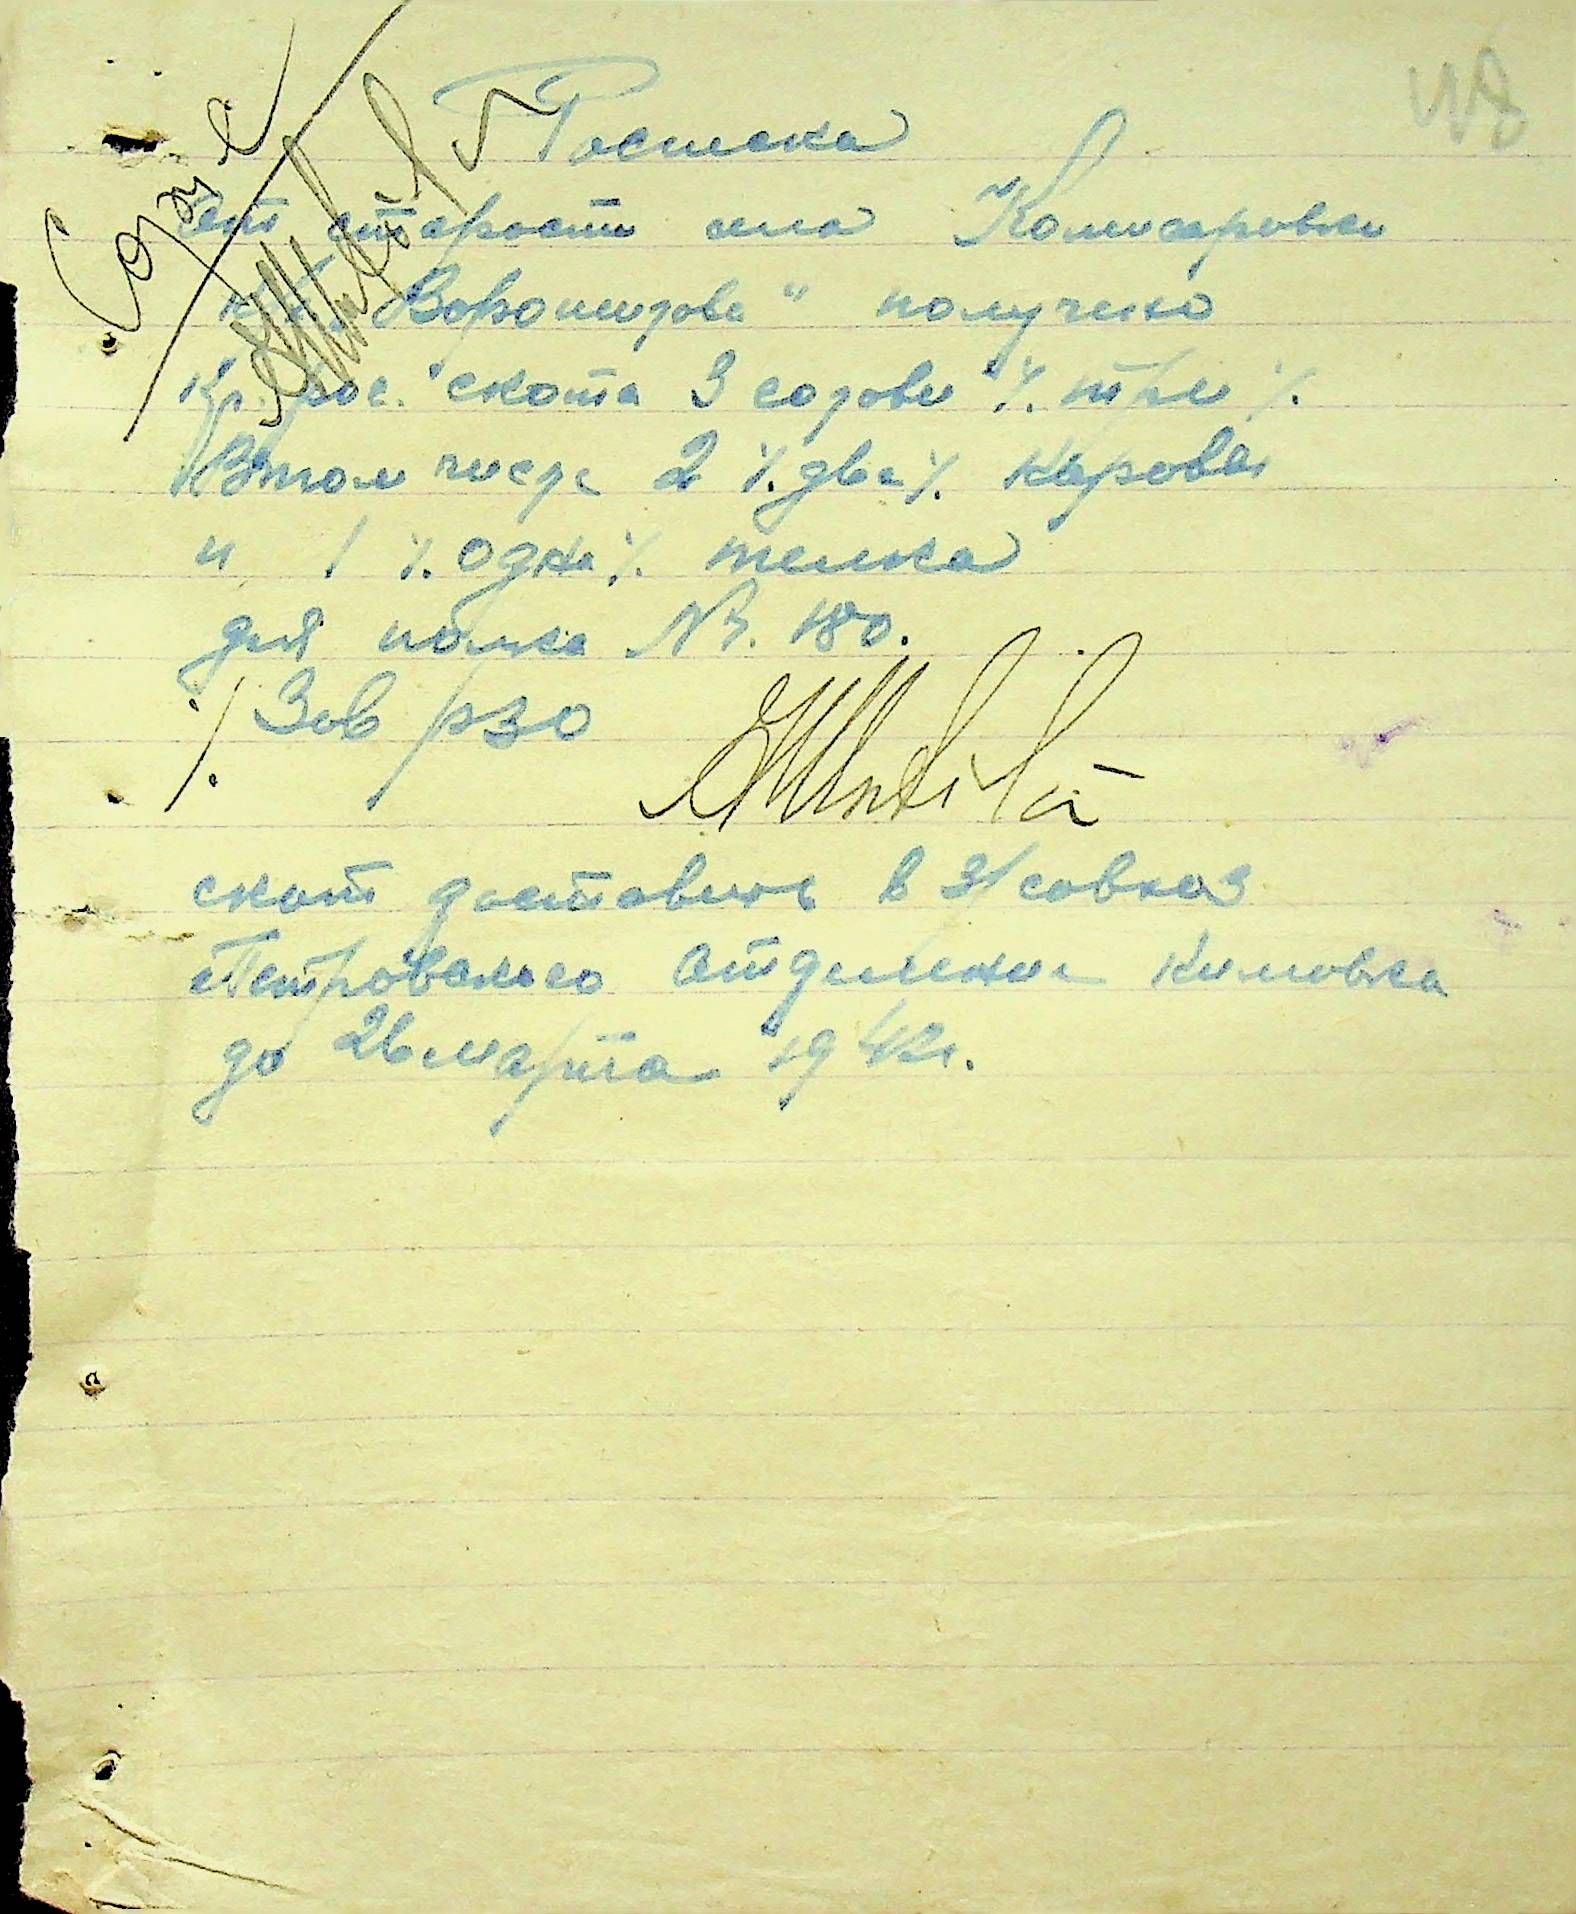 118
Росписка
от старости села Комисаровки
к/х „Ворошилова" получено
кр. рог. скота 3 головы %. три %.
В том числе 2 %. две %. коровы
и 1 %. одна %. телка
для полка №. 180.
%. Зав рзо
скот доставить в з/совхоз
Петровского отделения Климовка
до 26 марта 1942г.